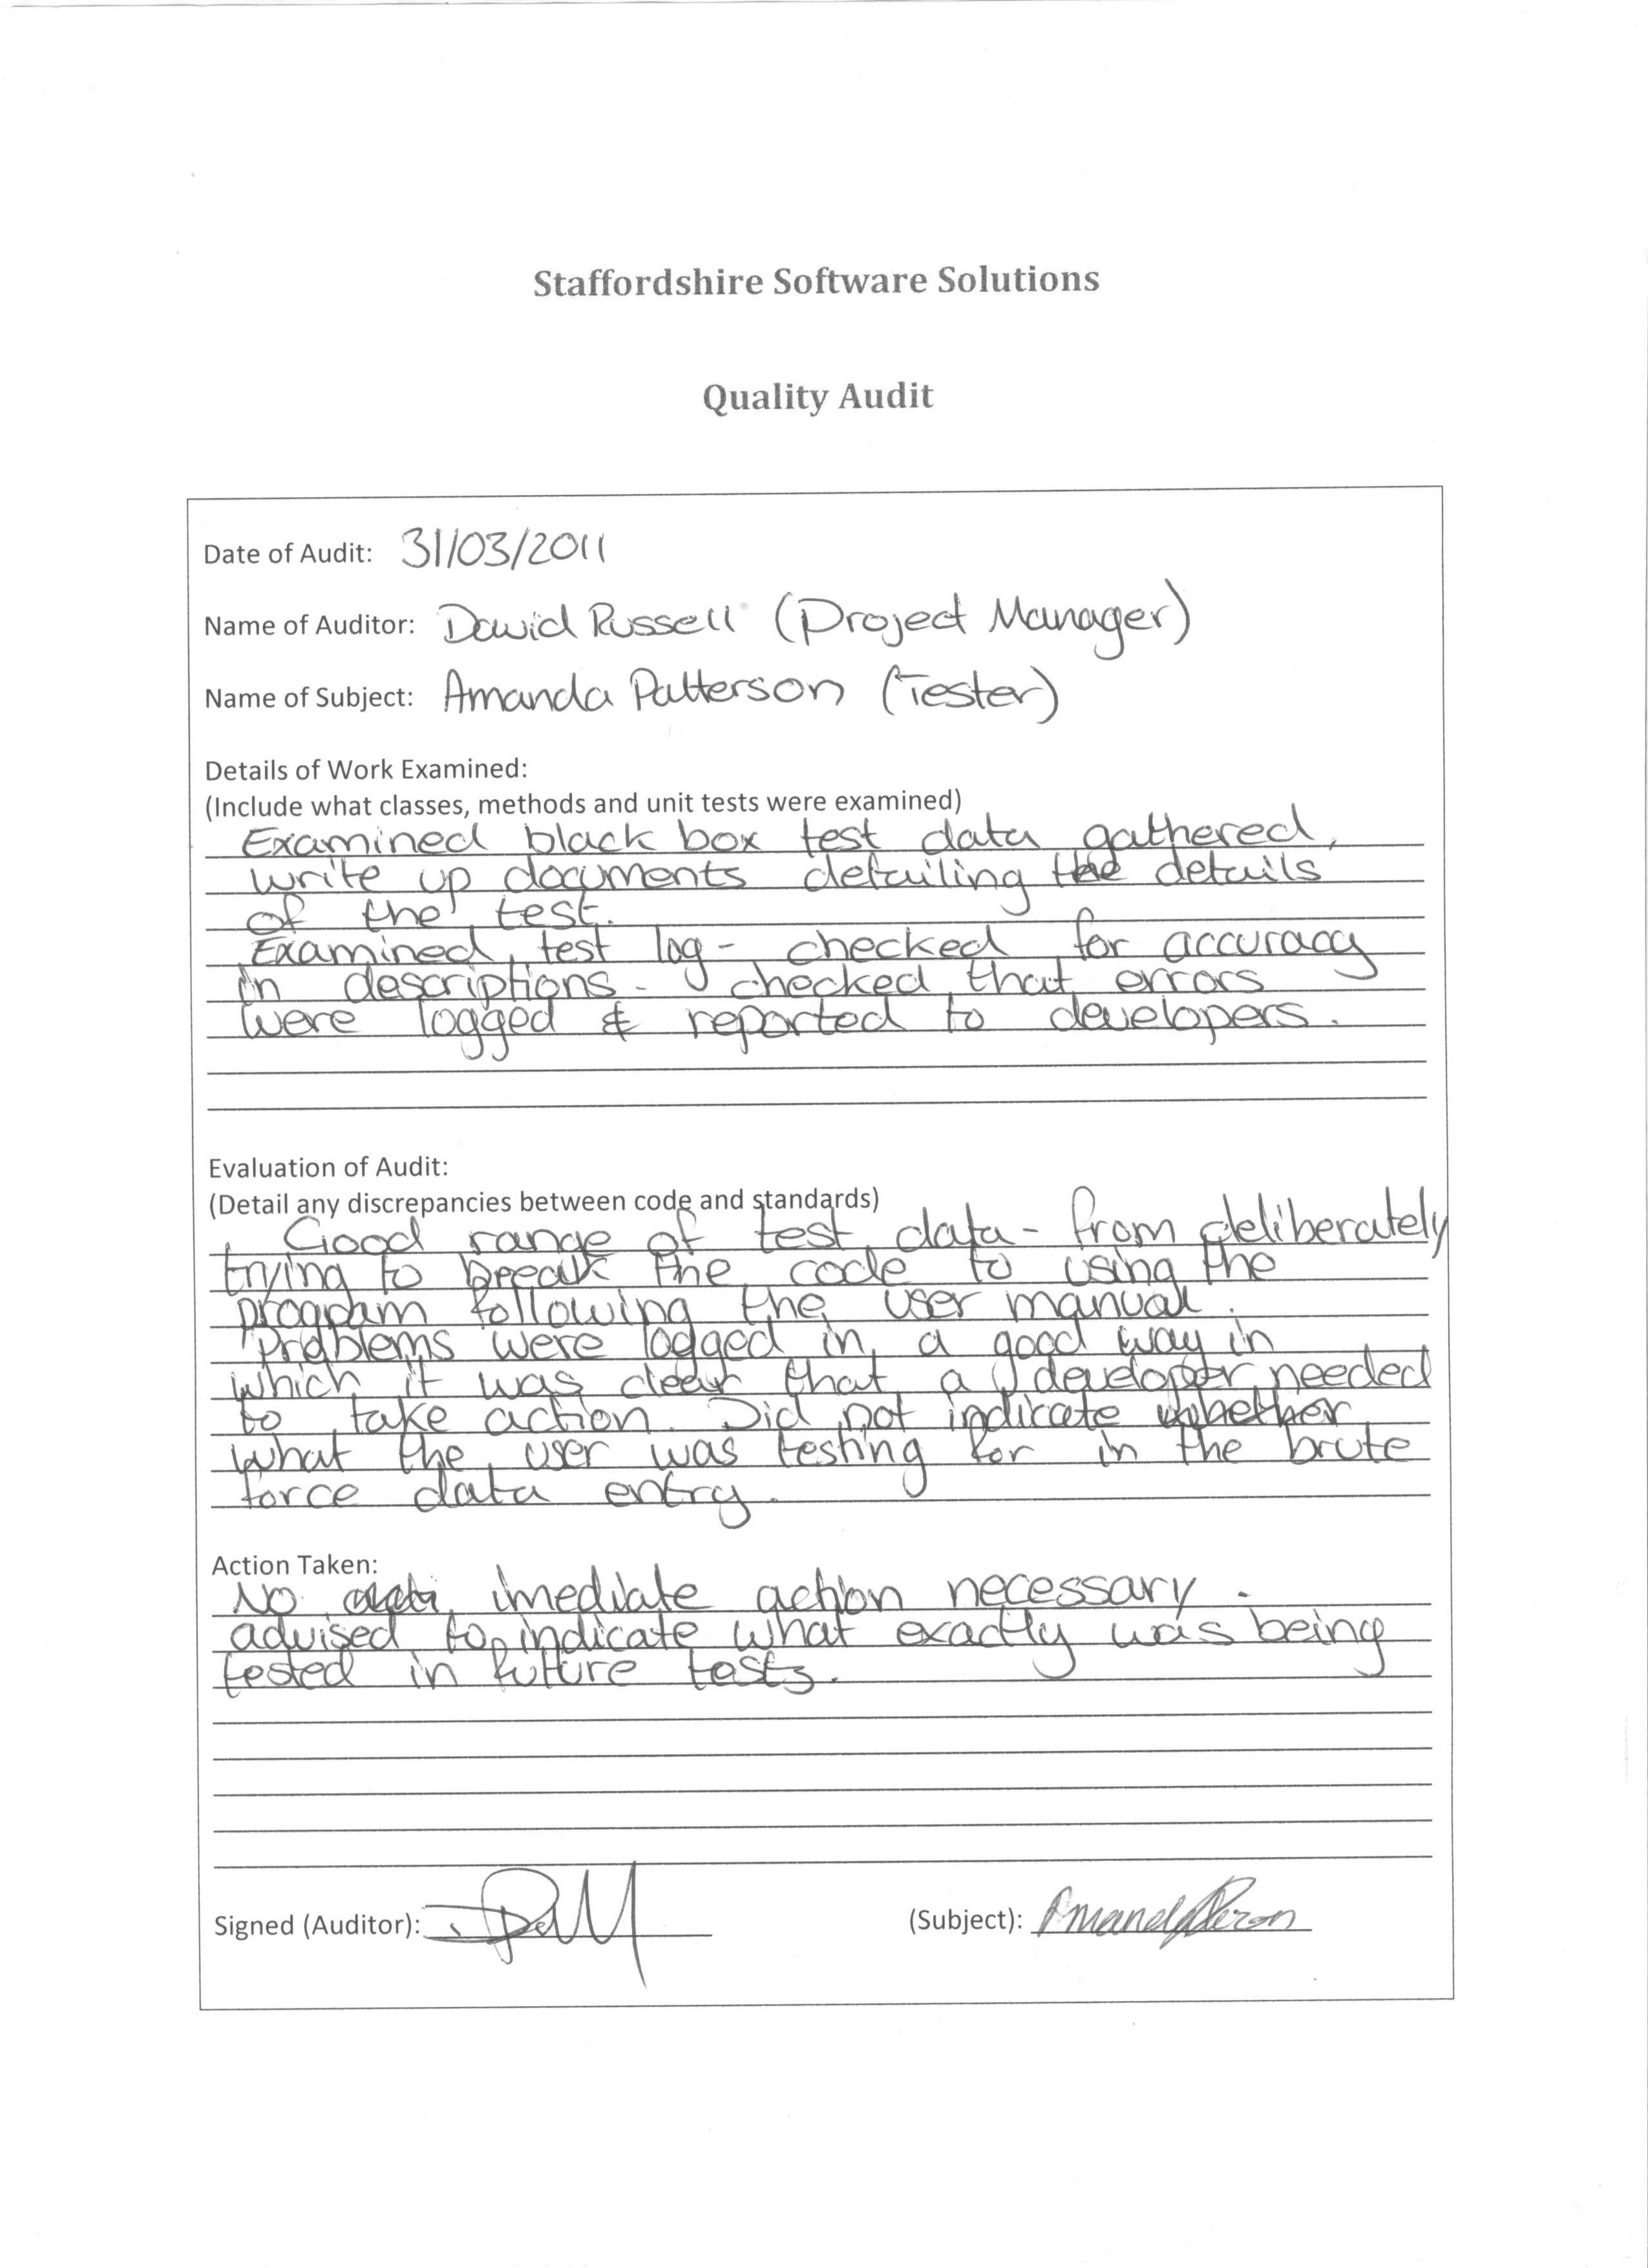 Staffordshire Software Solutions
Quality Audit
Date of Audit: 31/03/2011
Name of Auditor: David Russell (Project Manager)
Name of Subject: Amanda Patterson (Tester)
Details of Work Examined:
(Include what classes, methods and unit tests were examined)
Examined black box test data gathered,
write up documents detailing the details
of the test.
Examined test log - checked for accuracy
in descriptions - checked that errors
were logged & reported to developers.
Evaluation of Audit:
(Detail any discrepancies between code and standards)
Good range of test data - from deliberately
trying to break the code to using the
program following the user manual.
Problems were logged in a good way in
which it was clear that a developer needed
to take action. Did not indicate whether
what the user was testing for in the brute
force data entry.
Action Taken:
No imediate action necessary -
advised to indicate what exactly was being
tested in future tests.
Signed (Auditor):
(Subject):